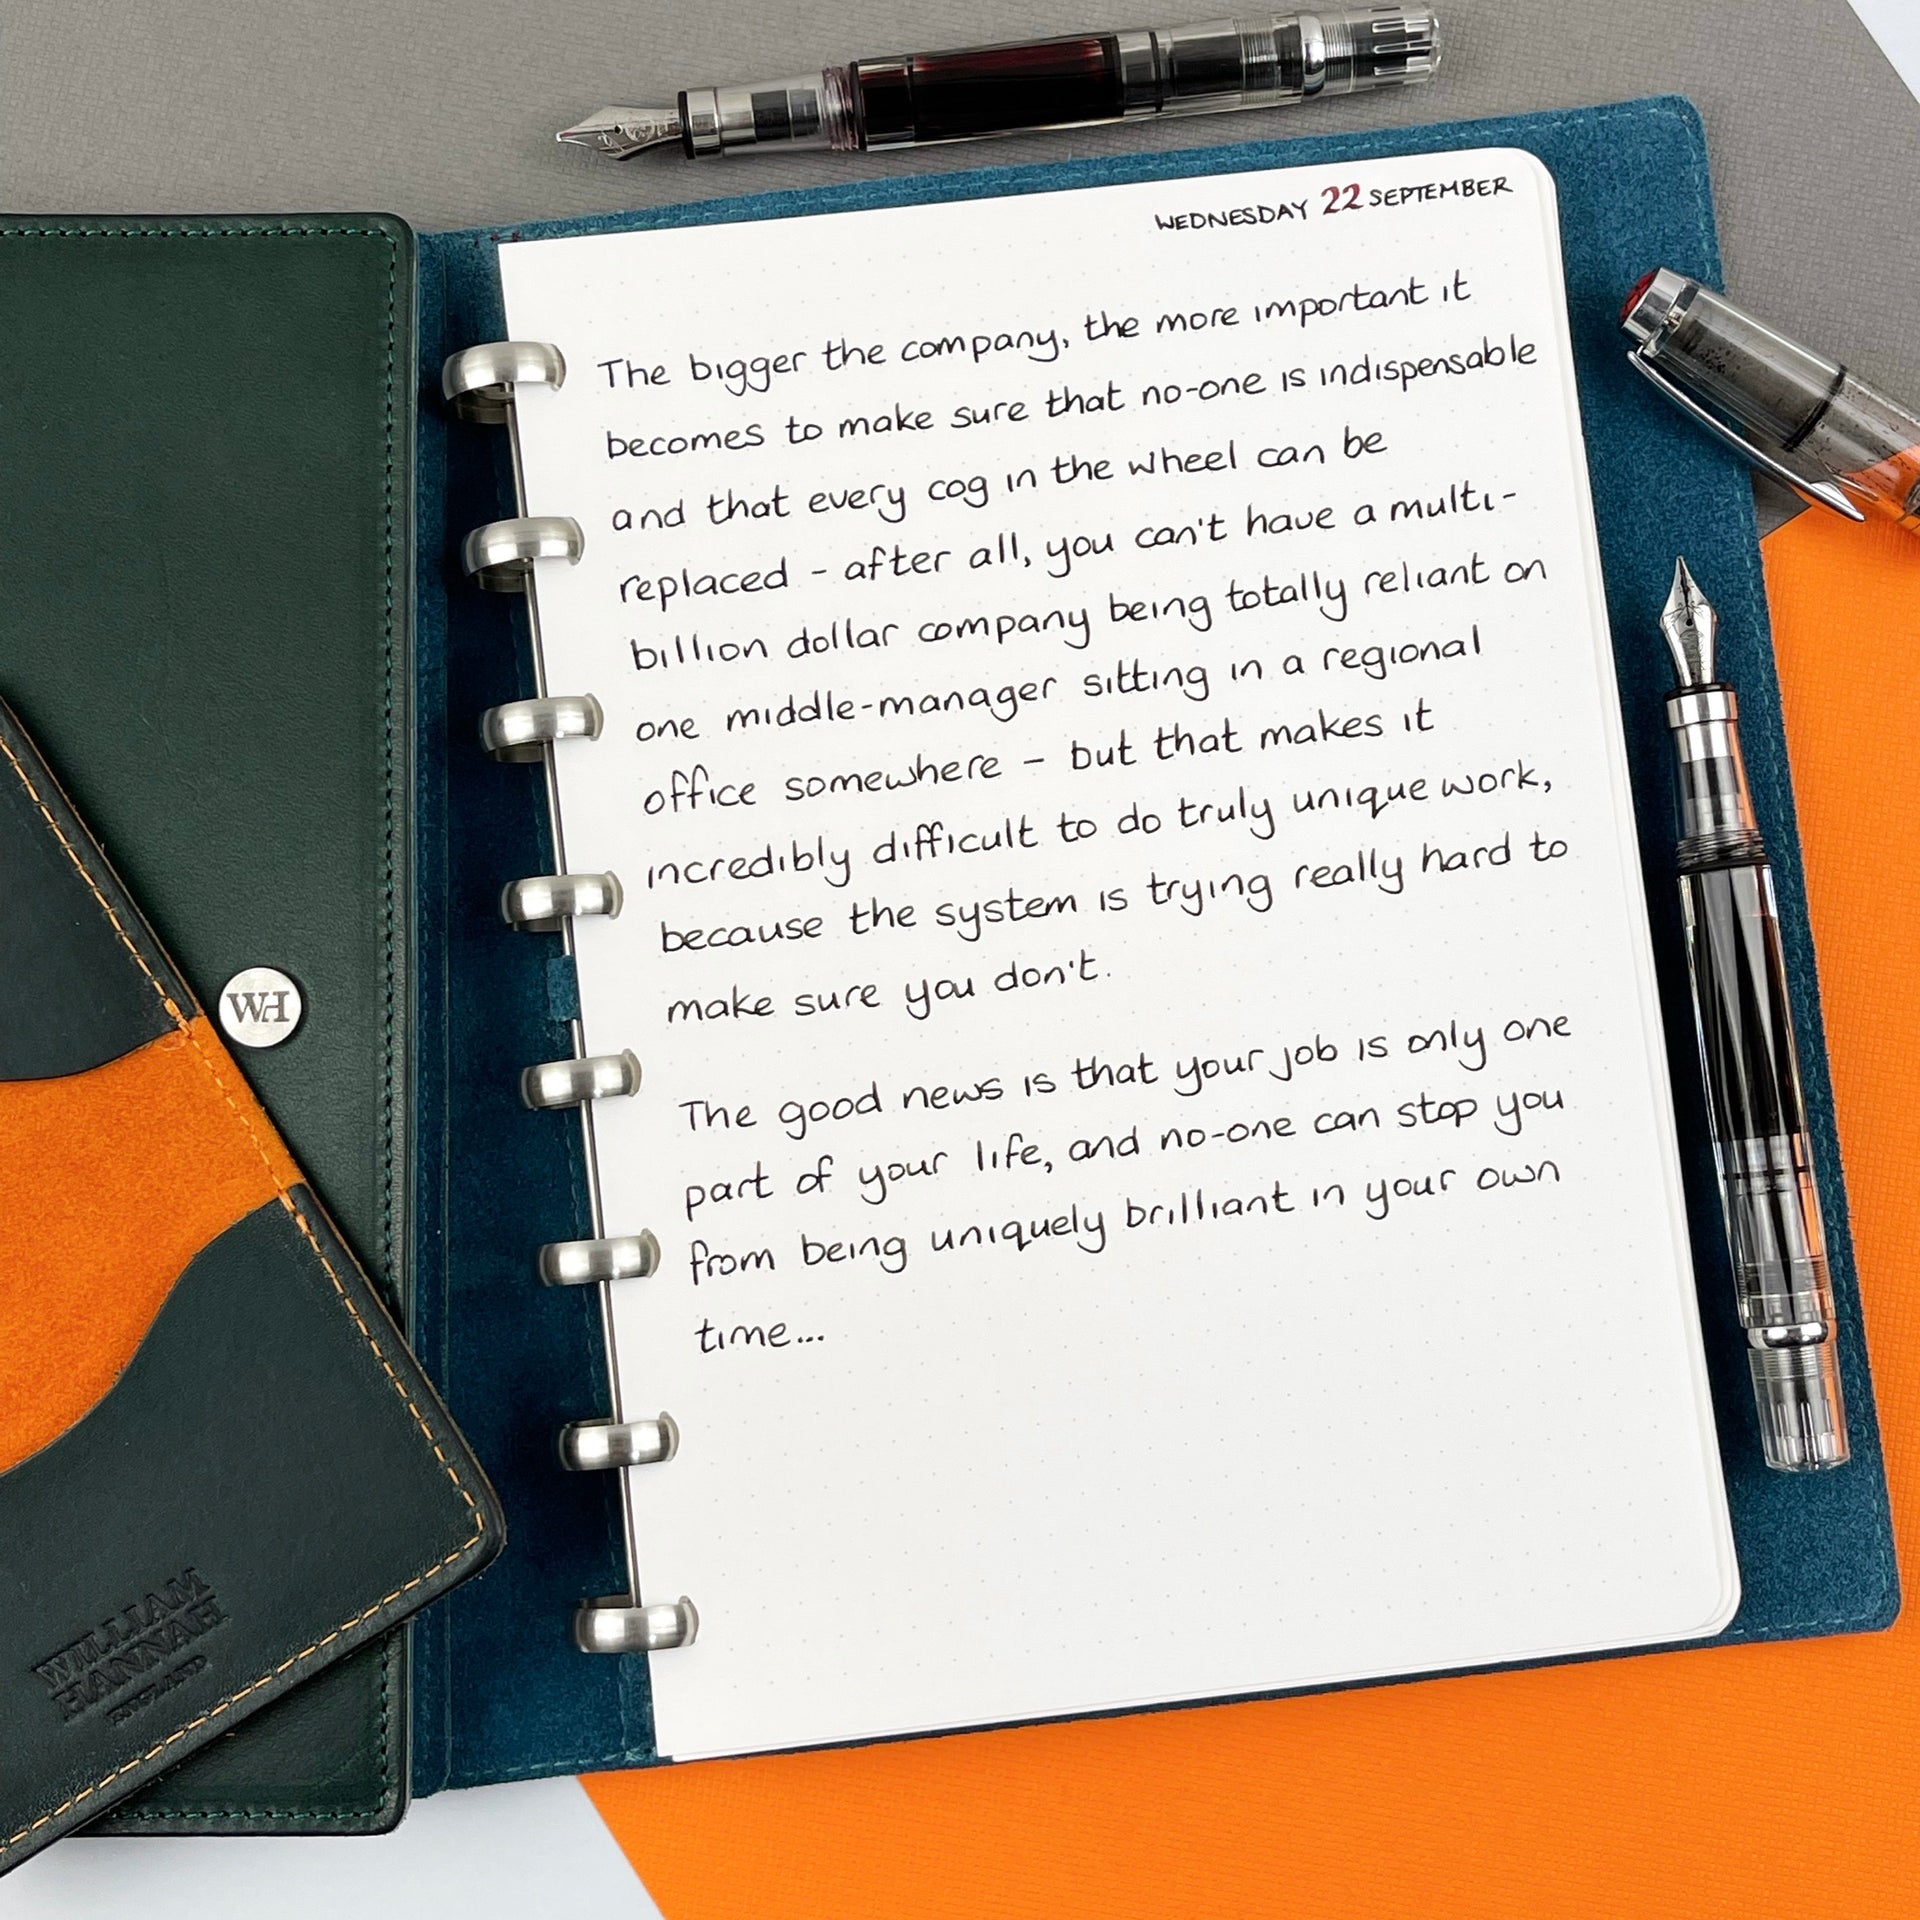 WEDNESDAY 22 SEPTEMBER
The bigger the company, the more important it
becomes to make sure that no-one is indispensable
and that every cog in the wheel can be
replaced - after all, you can't have a multi-
billion dollar company being totally reliant on
one middle-manager sitting in a regional
office somewhere - but that makes it
incredibly difficult to do truly unique work,
because the system is trying really hard to
make sure you don't.
The good news is that your job is only one
part of your life, and no-one can stop you
from being uniquely brilliant in your own
time...
WH
WILLIAM
HANNAH
ENGLAND